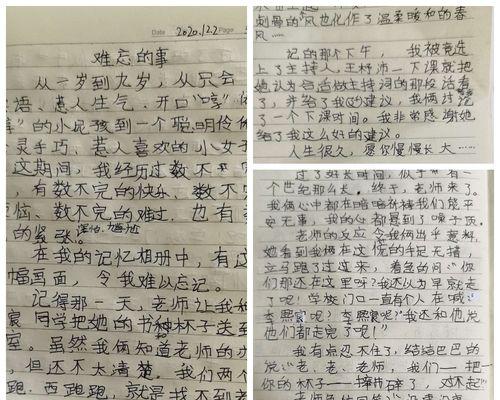 Date 2020.12.2 Page
难忘的事
从一岁到九岁，从只会
语、惹人生气、开口“嘻”
”的小屁孩到一个聪明伶
灵手巧、惹人喜欢的小女
这期间，我经历过数不
，有数不完的快乐、数不
恼、数不完的难过，也有
的紧张。
在我的记忆相册中，有
幅画面，令我难以忘记。
记得那一天，老师让我和
宸同学把她的书和杯子送到
室。虽然我俩知道老师的办
，但还不太清楚，我们两个
跑、西跑跑，就是找不到老
刺骨的“风也化作了温柔暖和的春
风……
记的那个下午，我被竞选
上了主持人，王杼沛一下课就把
她认为合适做主持词的那段话看
了，并给了我的建议，我俩讨论
了一个下课时间。我非常感谢她
给了我这么好的建议。
人生很久，愿你慢慢长大……
过了好长时间，似乎“有一
个世纪那么长，终于，老师来了。
我俩心中都在暗暗祈祷我们能平
安无事，我的心都提到了嗓子顶。
老师的反应令我俩出乎意料，
她看到我俩在这慌的手足无措，
立马跑了过过来，着急的问：“你
们那还在这里呀？我还以为早就走
了呢！学校门口一直有个人在喊
李熙宸呢？李熙宸呢？”我还和他说
他们都走完了呢！”
我有点忍不住了，结结巴巴的
说：“老、老、老师，我们—把—
你的杯子——摔碎了，对不起